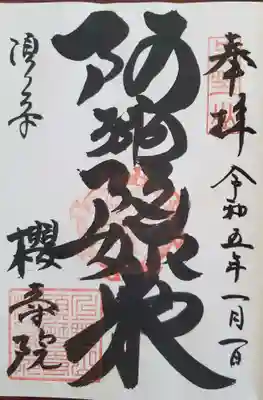 奉拝
令和五年一月一日
阿弥陀如来
櫻寿院